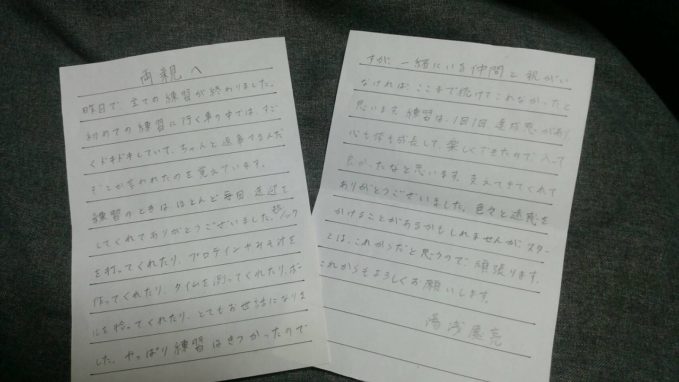 両親へ
昨日で、全ての練習が終わりました。
初めての練習に行く車の中では、すご
くドキドキしていて、ちゃんと返事するんだ
ぞと言われたのを覚えています。
練習のときは、ほとんど毎日、送迎を
してくれてありがとうございました。ノック
を打ってくれたり、プロテインやみそ汁を
作ってくれたり、タイムを測ってくれたり、ボー
ルを拾ってくれたり、とてもお世話になりま
した。やっぱり練習はきつかったので
すが、一緒にいる仲間と親がい
なければ、ここまで続けてこれなかったと
思います。練習は、1日1日、達成感があり
心も体も成長して、楽しくできたので、入って
良かったなと思います。支えてきてくれて
ありがとうございました。色々と迷惑を
かけることがあるかもしれませんが、スター
とは、これからだと思うので、頑張ります。
これからもよろしくお願いします。
湯浅